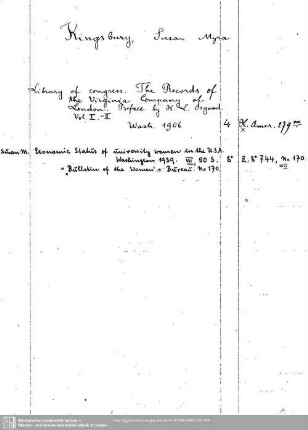 Kingsbury, Susan Myra
Library of congress. The Records of
the Virginia Company of
London. Preface by H. L. Osgood.
Vol. I.-II
Wash. 1906 4 H. Amer. 179
Susan M. Economic Status of university women in the U.S.A.
Washington 1939. VII, 50 S. 8° Z. 8° 744, No 170
= Bulletin of the Women's Bureau. No 170.